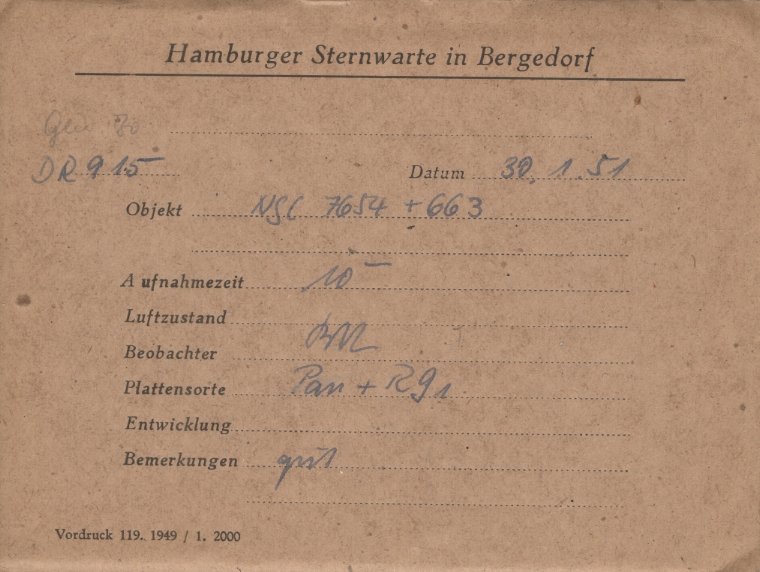 Hamburger Sternwarte in Bergedorf
DR 915 Datum 30. 1. 51
Objekt NGC 7654 + 663
Aufnahmezeit 10
Luftzustand
Beobachter
Plattensorte Pan + RG1
Entwicklung
Bemerkungen gut
Vordruck 119. 1949 / 1. 2000